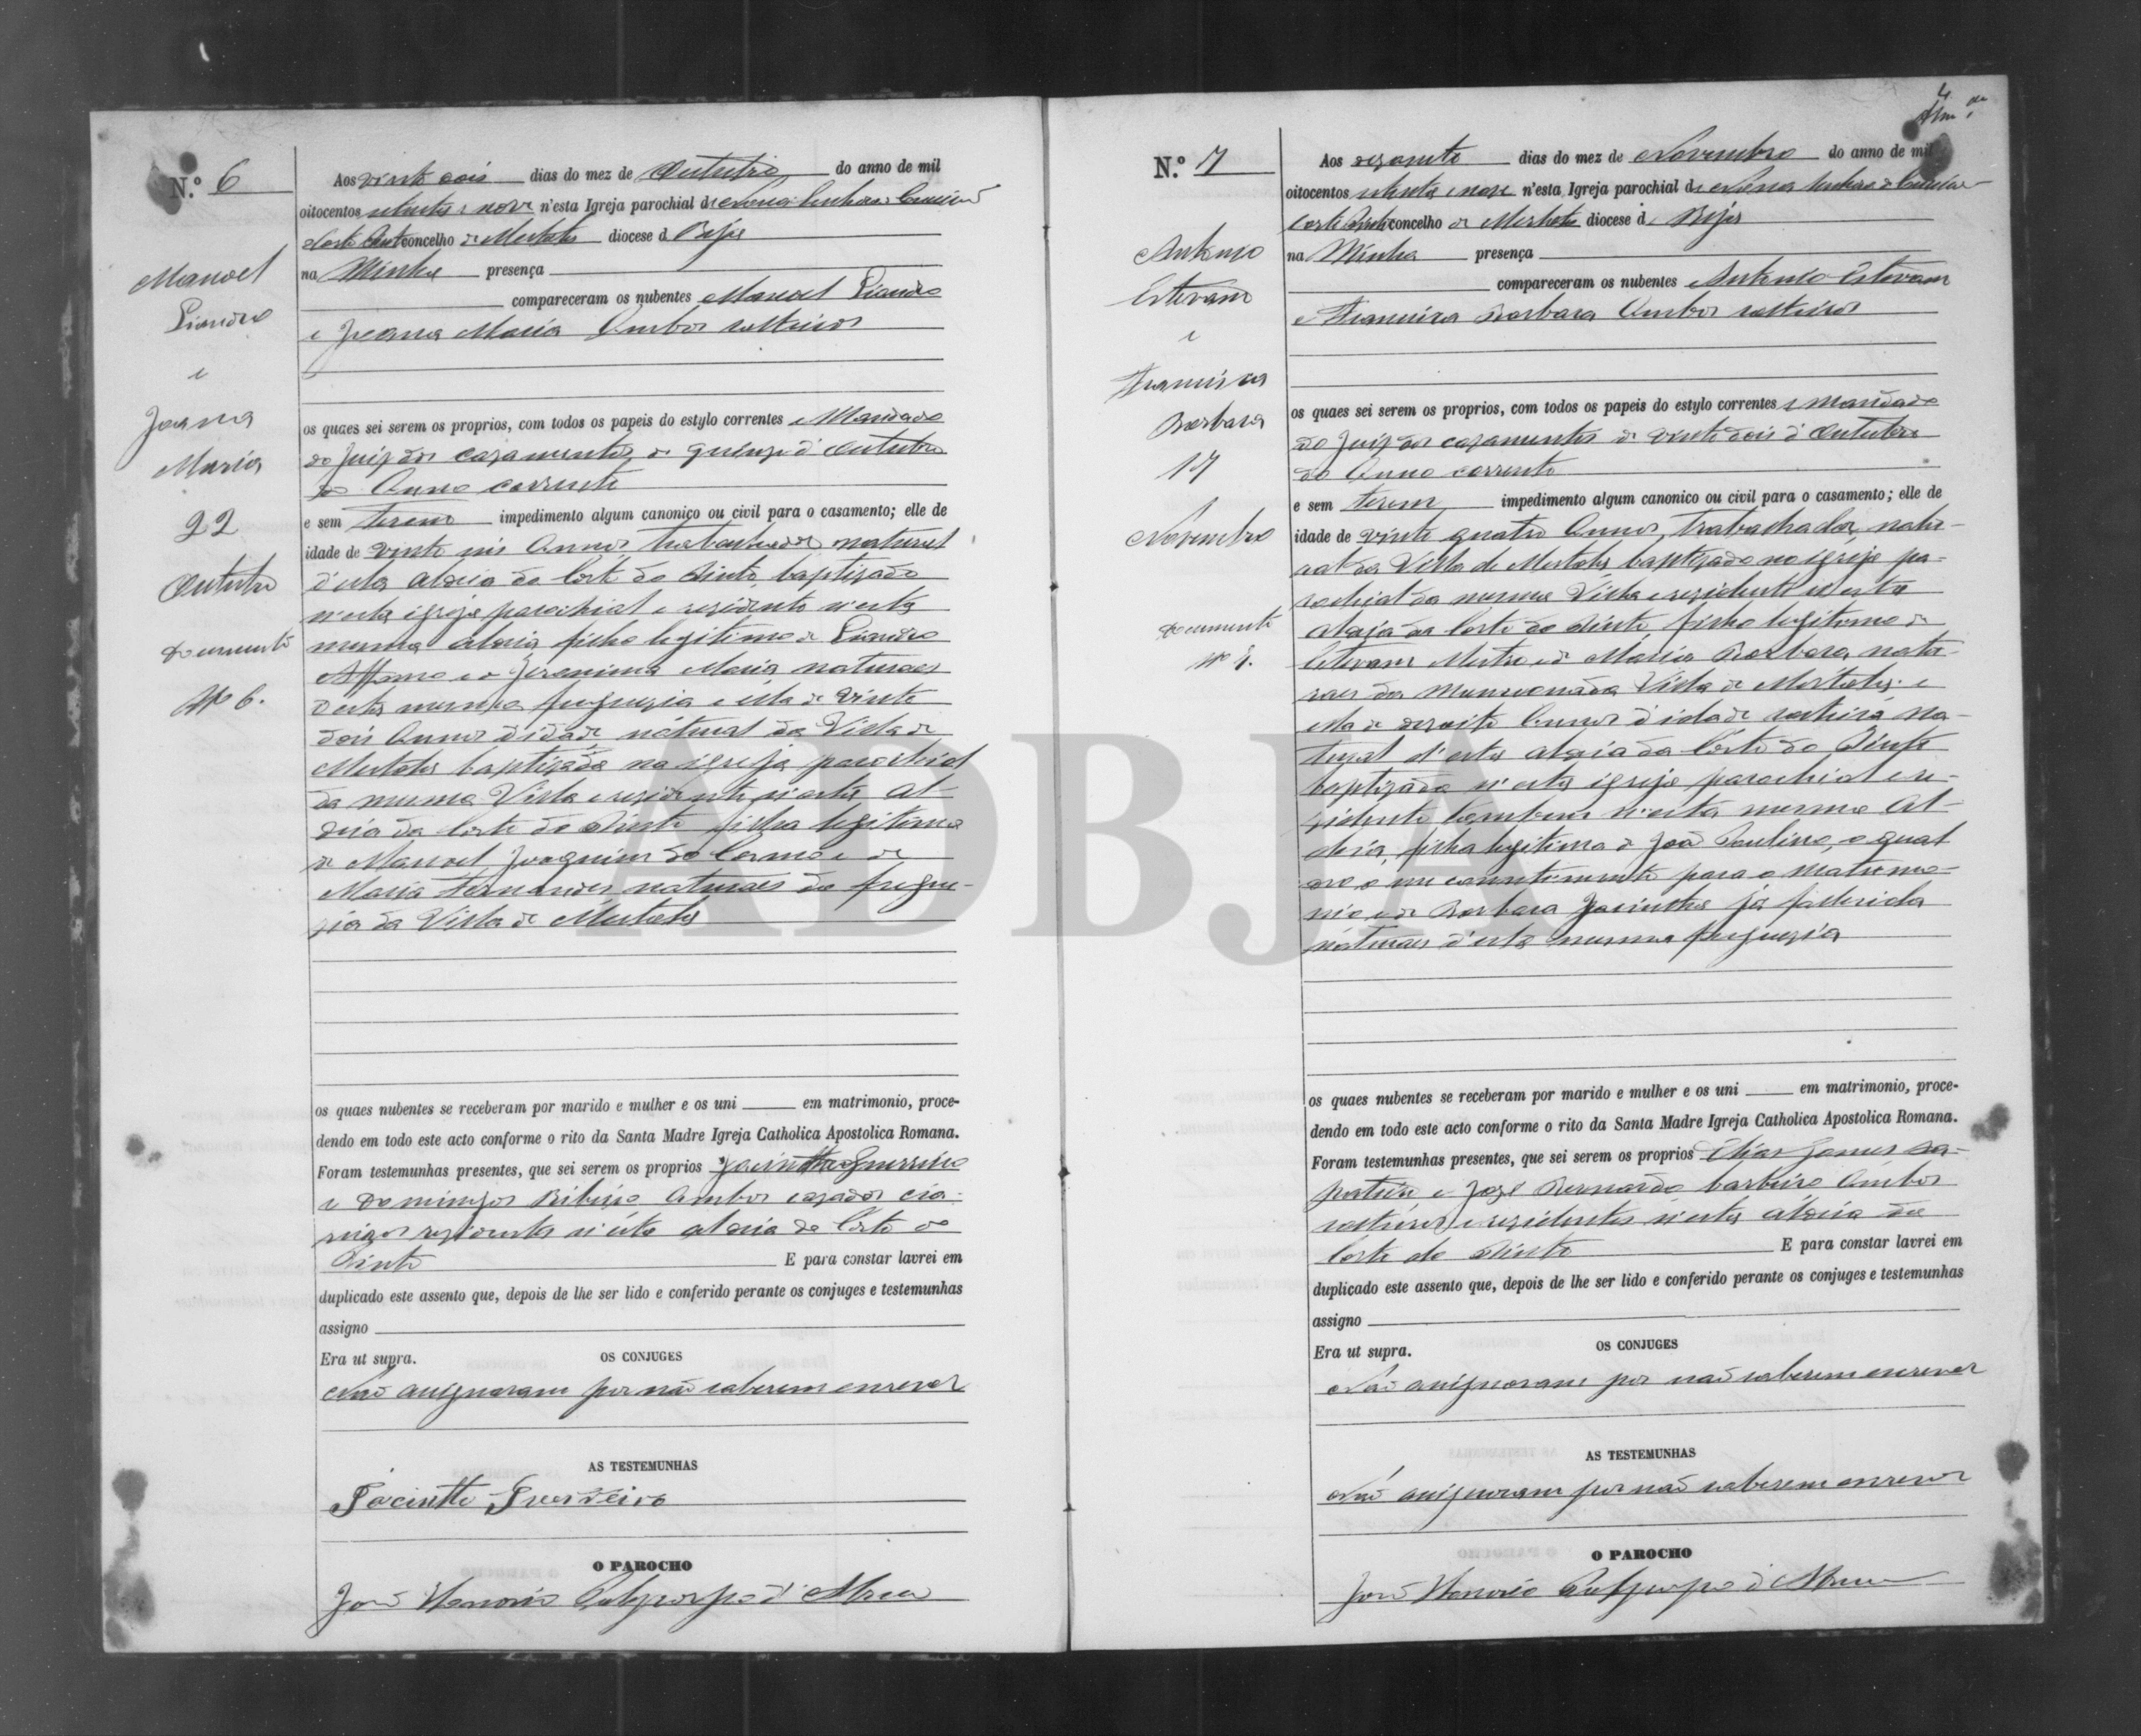 N.º 6
Manoel
Leandro
e
Joana
Maria
22
Outubro
Documento
Nº 6.
Aos vinte dois dias do mez de Outubro do anno de mil
oitocentos setenta e nove n'esta Igreja parochial de Nossa Senhora da Conceição
Corte Pinto concelho de Mertola diocese d Beja
na Minha presença
compareceram os nubentes Manoel Leandro
e Joana Maria Ambos solteiros
os quaes sei serem os proprios, com todos os papeis do estylo correntes e Mandado
do Juiz dos cazamentos de quinze d'Outubro
do Anno corrente
e sem terem impedimento algum canonico ou civil para o casamento; elle de
idade de vinte seis Annos, trabalhador, natural
d'esta aldeia da Corte do Pinto baptizado
n'esta igreja parochial e rezidente n'esta
mesma aldeia filho legitimo de Leandro
Affonso e de Jeronima Maria naturaes
desta mesma freguezia e ella de vinte
dois Annos d'idade natural da Villa de
Mertola baptizada na igreja parochial
da mesma Villa e rezidente n'esta al-
deia da Corte do Pinto filha legitima
de Manoel Joaquim do Carmo e de
Maria Fernandes naturaes da fregue-
zia da Villa de Mertola
os quaes nubentes se receberam por marido e mulher e os uni em matrimonio, proce-
dendo em todo este acto conforme o rito da Santa Madre Igreja Catholica Apostolica Romana.
Foram testemunhas presentes, que sei serem os proprios Jacintho Guerreiro
e Domingos Ribeiro Ambos cazados
rezidentes n'esta aldeia da Corte do
Pinto E para constar lavrei em
duplicado este assento que, depois de lhe ser lido e conferido perante os conjuges e testemunhas
assigno
Era ut supra. OS CONJUGES
Não assignaram por não saberem escrever
AS TESTEMUNHAS
Jacintho Guerreiro
O PAROCHO
João Honorio d'Abreu
4
N.º 7
Antonio
Estevam
e
Francisca
Barbara
17
Novembro
Documento
Nº 7.
Aos dezasete dias do mez de Novembro do anno de mil
oitocentos setenta e nove n'esta Igreja parochial de Nossa Senhora da Conceição
Corte Pinto concelho de Mertola diocese d Beja
na Minha presença
compareceram os nubentes Antonio Estevam
e Francisca Barbara Ambos solteiros
os quaes sei serem os proprios, com todos os papeis do estylo correntes e mandado
do Juiz dos cazamentos de vinte dois d'Outubro
do Anno corrente
e sem terem impedimento algum canonico ou civil para o casamento; elle de
idade de vinte quatro Annos, trabalhador, natu-
ral da Villa de Mertola baptizado na igreja pa-
rochial da mesma Villa e rezidente n'esta
aldeia da Corte do Pinto filho legitimo de
Estevam Mestre e de Maria Barbara, natu-
raes da mencionada Villa de Mertola e
ella de dezoito Annos d'idade solteira na-
tural d'esta aldeia da Corte do Pinto
baptizada n'esta igreja parochial e re-
zidente tambem n'esta mesma al-
deia, filha legitima de João Paulino, o qual
deo o seu consentimento para o matrimo-
nio e de Barbara Jacintha já fallecida
naturaes d'esta mesma freguezia
os quaes nubentes se receberam por marido e mulher e os uni em matrimonio, proce-
dendo em todo este acto conforme o rito da Santa Madre Igreja Catholica Apostolica Romana.
Foram testemunhas presentes, que sei serem os proprios Elias Gomes sa-
pateiro e Jozé Bernardo barbeiro Ambos
solteiros e rezidentes n'esta aldeia da
Corte do Pinto E para constar lavrei em
duplicado este assento que, depois de lhe ser lido e conferido perante os conjuges e testemunhas
assigno
Era ut supra. OS CONJUGES
Não assignaram por não saberem escrever
AS TESTEMUNHAS
Não assignaram por não saberem escrever
O PAROCHO
João Honorio d'Abreu
ADBJA